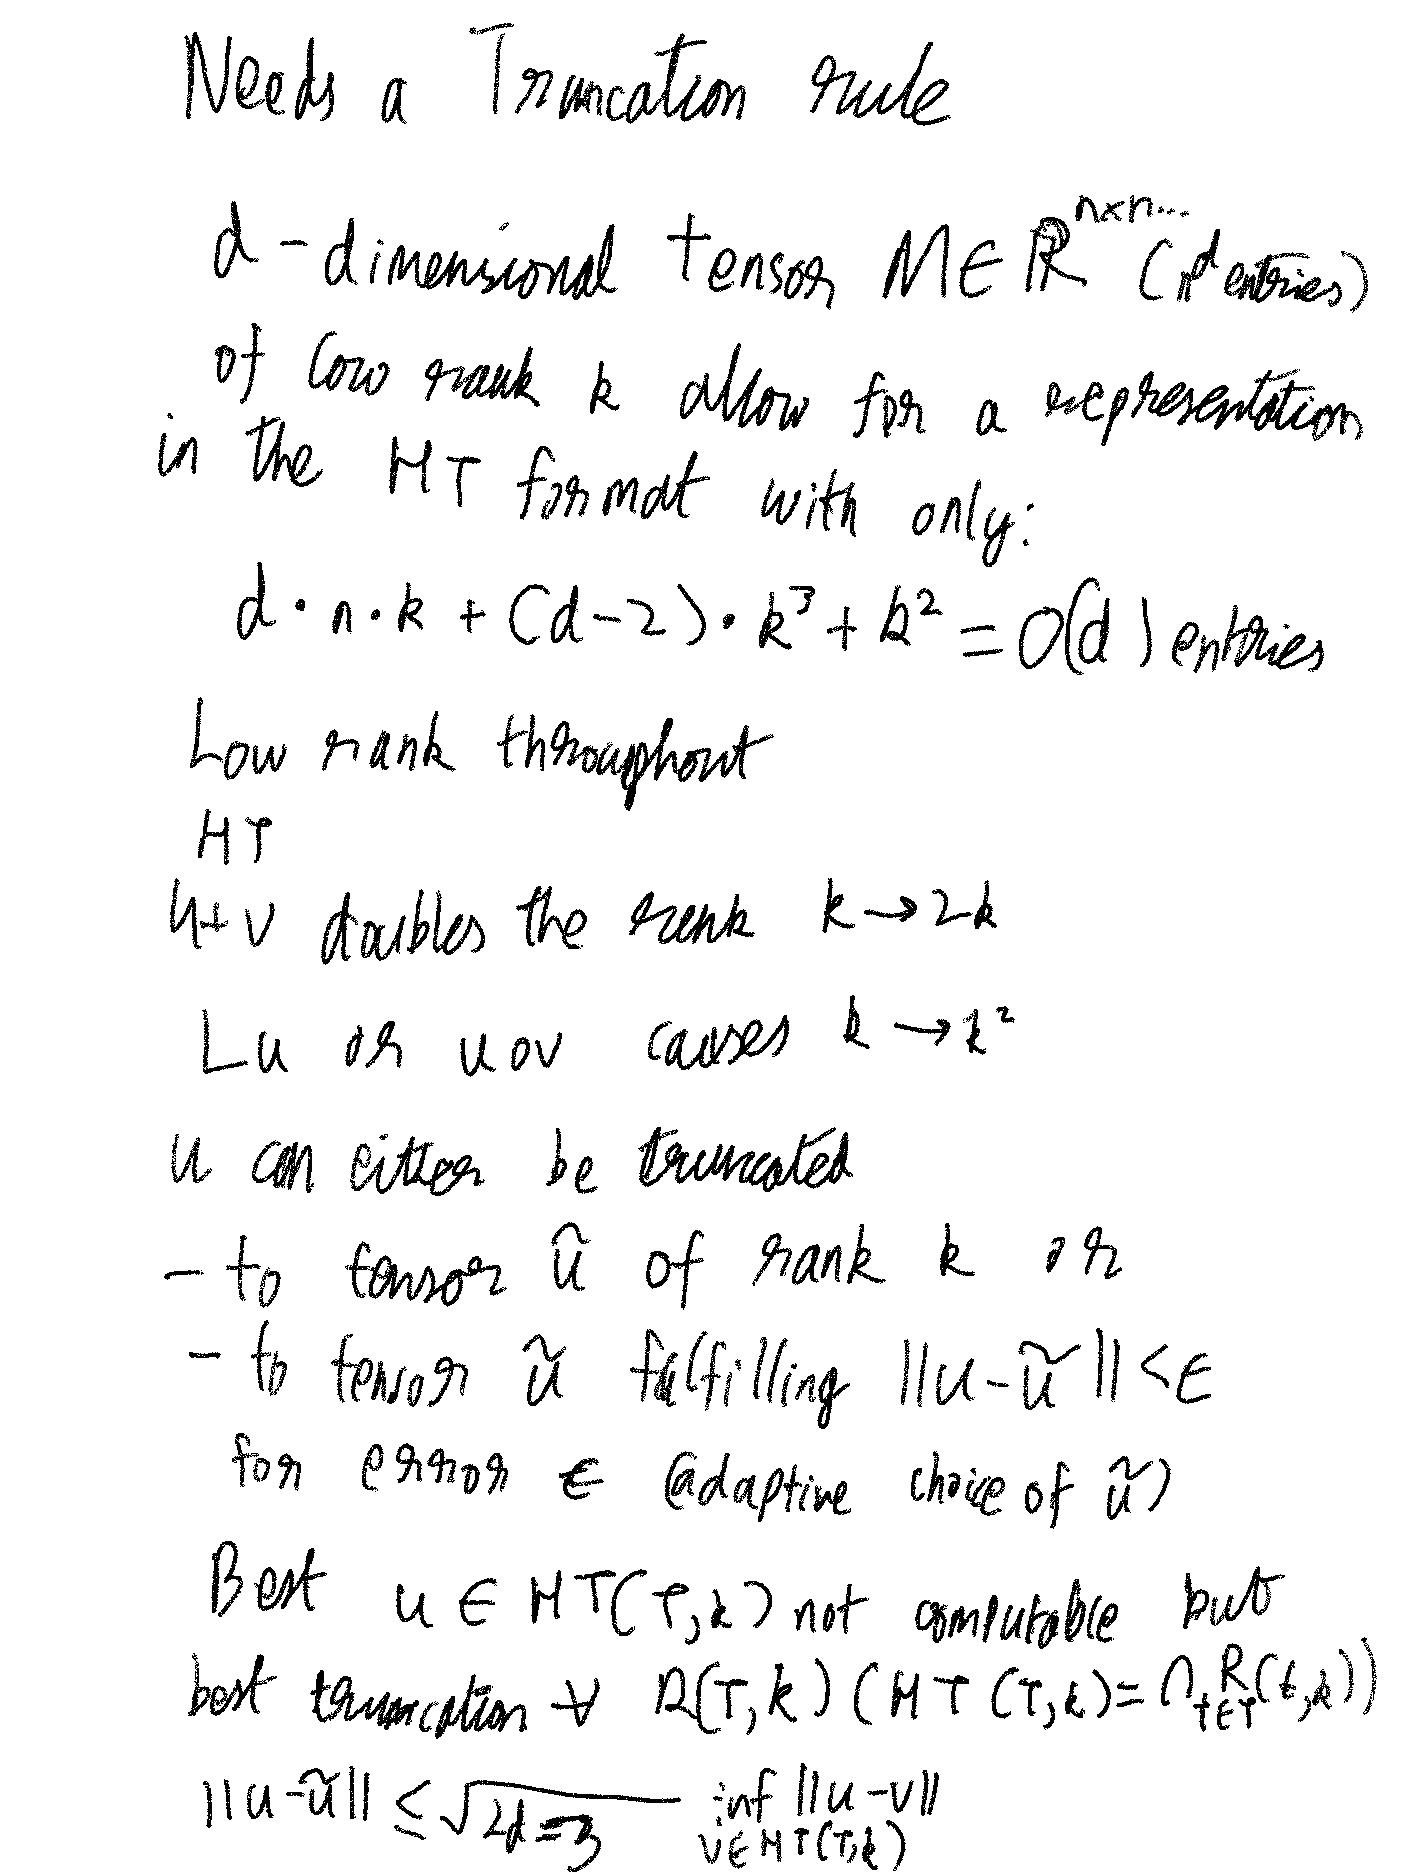 Needs a Truncation rule
d-dimensional tensor M ∈ ℝ^{n×n...} (n^d entries)
of low rank k allow for a representation
in the HT format with only:
d·n·k + (d-2)·k³ + k² = O(d) entries
Low rank throughout
HT
u+v doubles the rank k → 2k
Lu or u∘v causes k → k²
u can either be truncated
- to tensor ũ of rank k or
- to tensor ũ fulfilling ||u-ũ|| < ε
for error ε (adaptive choice of ũ)
Best u ∈ HT(T,k) not computable but
best truncation ∀ R(T,k) (HT(T,k) = ∩_{t∈T} R(t,k))
||u-ũ|| ≤ √(2d-3) inf_{v∈HT(T,k)} ||u-v||